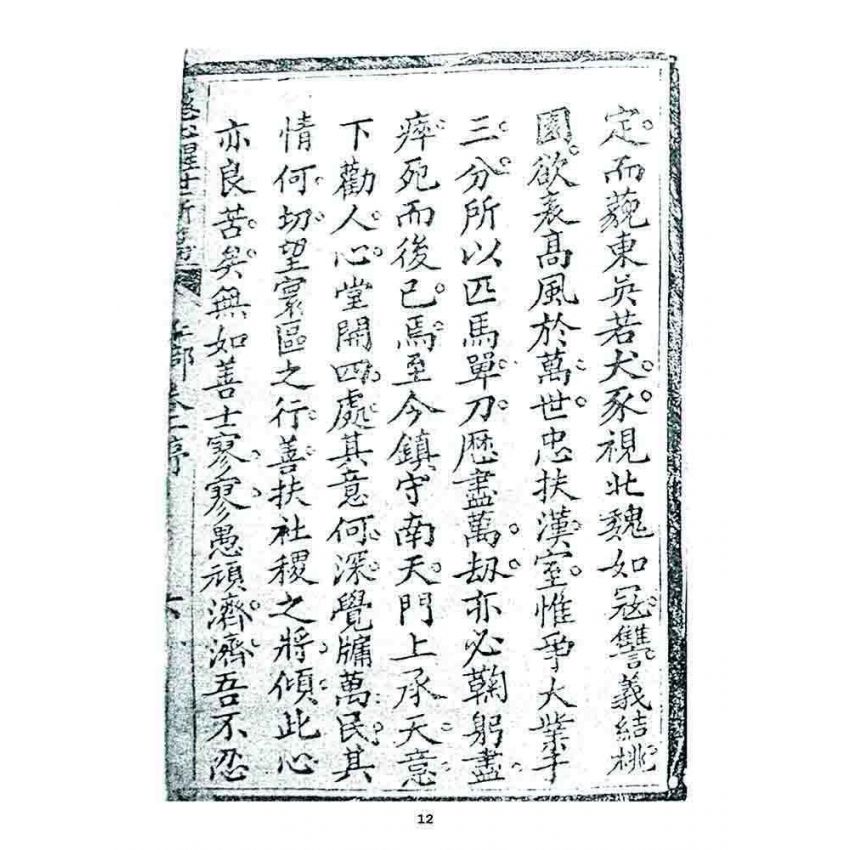 定而藐東吳若犬豕視北魏如寇讐義結桃
園欲表高風於萬世忠扶漢室惟爭大業于
三分所以匹馬單刀歷盡萬劫亦必鞠躬盡
瘁死而後已焉至今鎮守南天門上承天意
下勸人心堂開四處其意何深覺牖萬民其
情何切望寰區之行善扶社稷之將傾此心
亦良苦矣無如善士寥寥愚頑濟濟吾不忍
醒世新
12